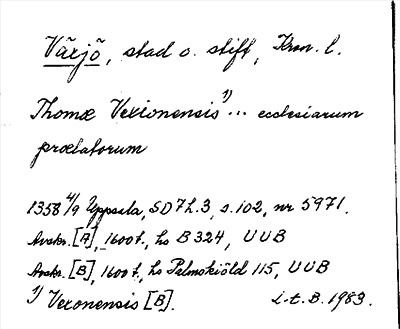 Växjö, stad o. stift, Krn. l.
Thomæ Vexionensis 1) ... ecclesiarum
prælatorum
1358 4/9 Uppsala, SD 7 h. 3, s. 102, nr 5971.
Avskr. [A], 1600 t., hs B 324, UUB
Avskr. [B], 1600 t., hs Palmskiöld 115, UUB
1) Vexonensis [B]. i.-t. B. 1983.